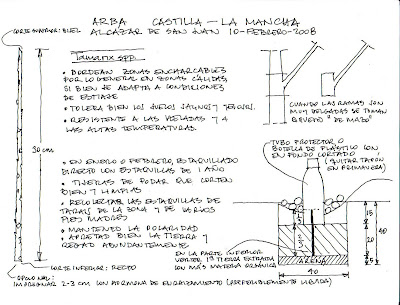 ARBA CASTILLA-LA MANCHA
ALCAZAR DE SAN JUAN 10-FEBRERO-2008
CORTE SUPERIOR: BISEL
Tamarix spp.
• BORDEAN ZONAS ENCHARCABLES
POR LO GENERAL EN ZONAS CÁLIDAS,
SI BIEN SE ADAPTA A CONDICIONES
DE ESTIAJE
• TOLERA BIEN LOS SUELOS SALINOS Y YESOSOS.
• RESISTENTE A LAS HELADAS Y A
LAS ALTAS TEMPERATURAS.
30 cm
• EN ENERO O FEBRERO, ESTAQUILLADO
DIRECTO CON ESTAQUILLAS DE 1 AÑO
• TIJERAS DE PODAR QUE CORTEN
BIEN Y LIMPIAS
• RECOLECTAR LAS ESTAQUILLAS DE
TARAIS DE LA ZONA Y DE VARIOS
PIES MADRES
• MANTENIENDO LA POLARIDAD
• APRETAR BIEN LA TIERRA Y
REGAR ABUNDANTEMENTE
CORTE INFERIOR: RECTO
OPCIONAL:
IMPREGNAR 2-3 cm CON HORMONA DE ENRAIZAMIENTO (PREFERIBLEMENTE LÍQUIDA)
CUANDO LAS RAMAS SON
MUY DELGADAS SE TOMAN
ESQUEJE "DE MAZO"
TUBO PROTECTOR O
BOTELLA DE PLÁSTICO CON
EN FONDO CORTADO
(QUITAR TAPON
EN PRIMAVERA)
15
20
5
40
ARENA
40
EN LA PARTE INFERIOR
VERTER 1ª TIERRA EXTRAIDA
CON MÁS MATERIA ORGÁNICA